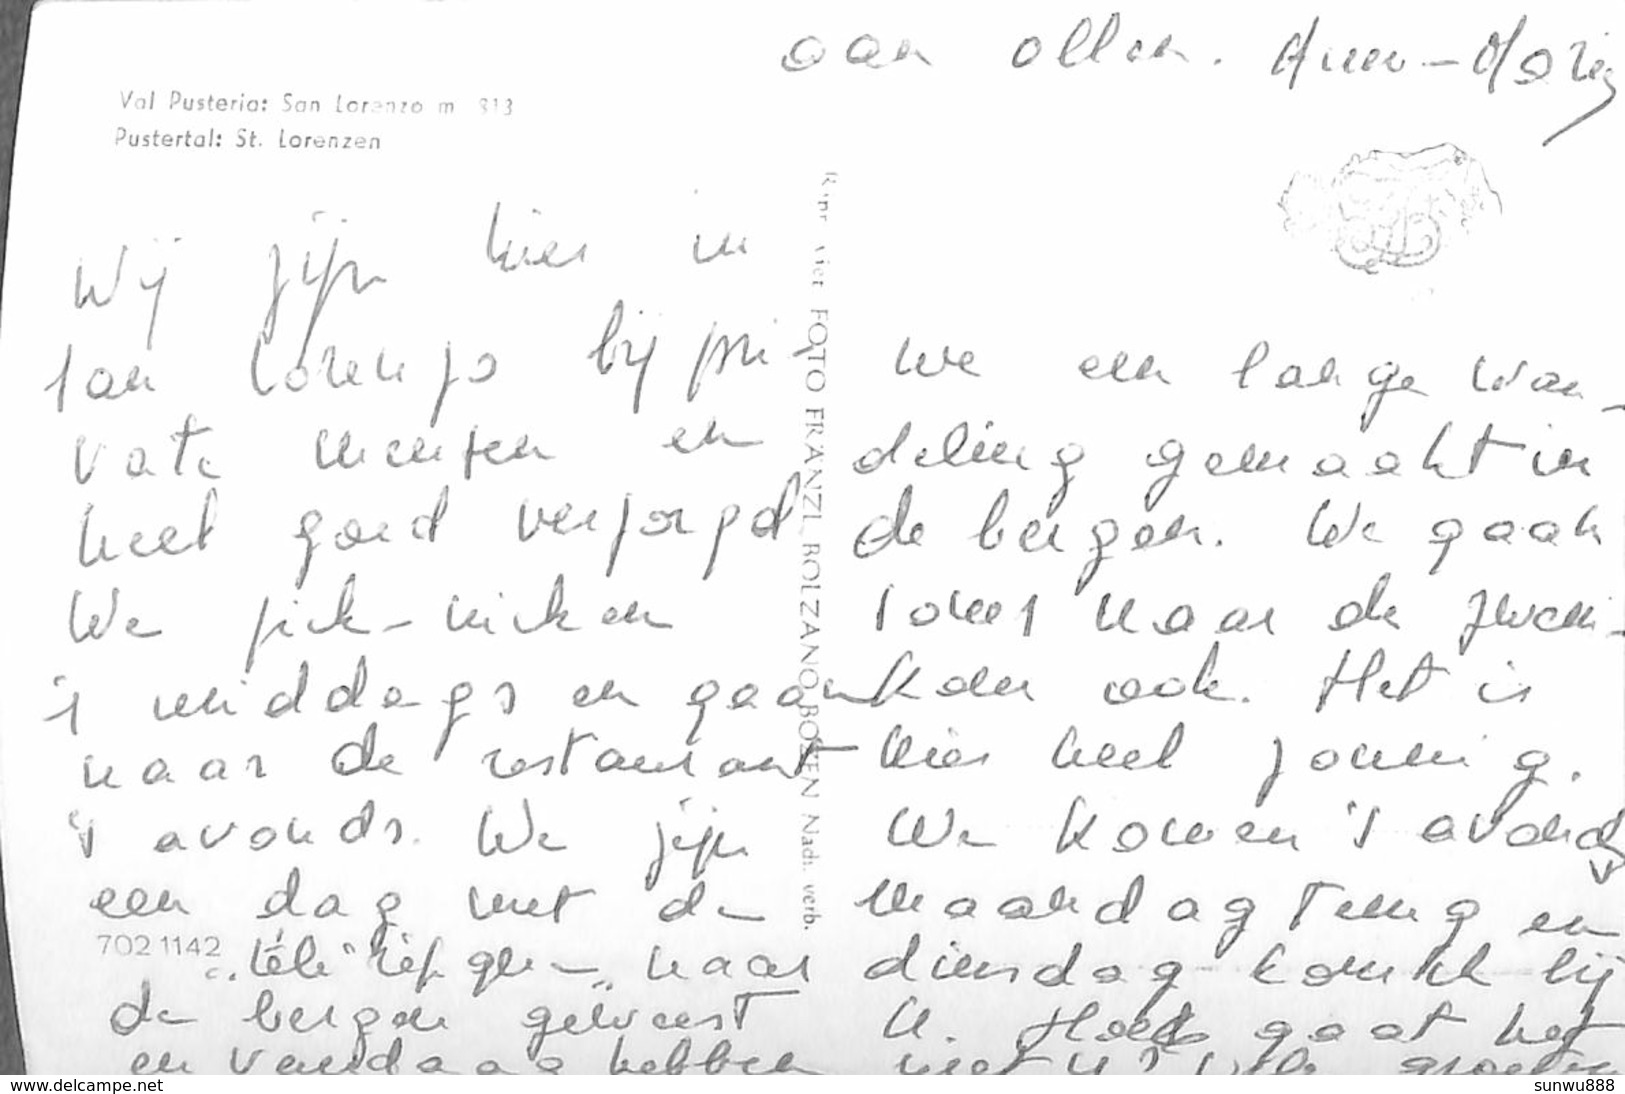 aan allen. Ann-Marie
Val Pusteria: San Lorenzo m 813
Pustertal: St. Lorenzen
Wij zijn hier in
San Lorenzo bij pri-
vate mensen en
heel goed verzorgd
We pick-nicken
's middags en gaan
naar de restaurant
's avonds. We zijn
een dag met de
"télé"riefque" naar
de bergen geweest
en vandaag hebben
702 1142
FOTO FRANZL BOLZANO-BOZEN Nadr. verb.
we een lange wan-
deling gemaakt in
de bergen. We gaan
soms naar de zwem-
kom ook. Het is
hier heel zonnig.
We komen 's avonds
maandag terug en
dinsdag kom ik bij
U. Hoe gaat het
met U? Vele groeten
www.delcampe.net
sunwu888